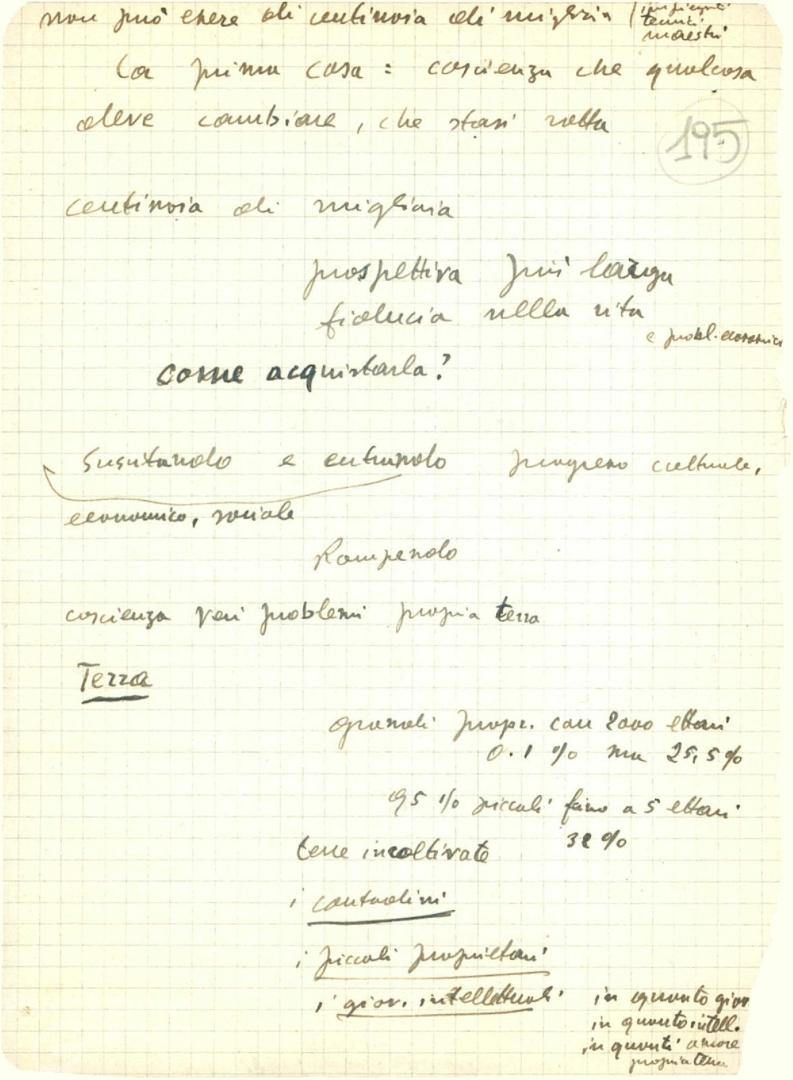 non può essere di centinaia di migliaia / impiegati
tecnici
maestri
La prima cosa = coscienza che qualcosa
deve cambiare, che stasi rotta
195
centinaia di migliaia
prospettiva più larga
fiducia nella vita
e probl. economici
come acquistarla?
Suscitando e entrando progresso culturale,
economico, sociale
Rompendo
coscienza veri problemi propria terra
Terra
grandi propr. con 2000 ettari
0.1 % ma 25,5 %
95 % piccoli fino a 5 ettari
32 %
terre incoltivate
i contadini
i piccoli proprietari
i giov. intellettuali
in quanto giov
in quanto intell.
in quanti amore
propria terra